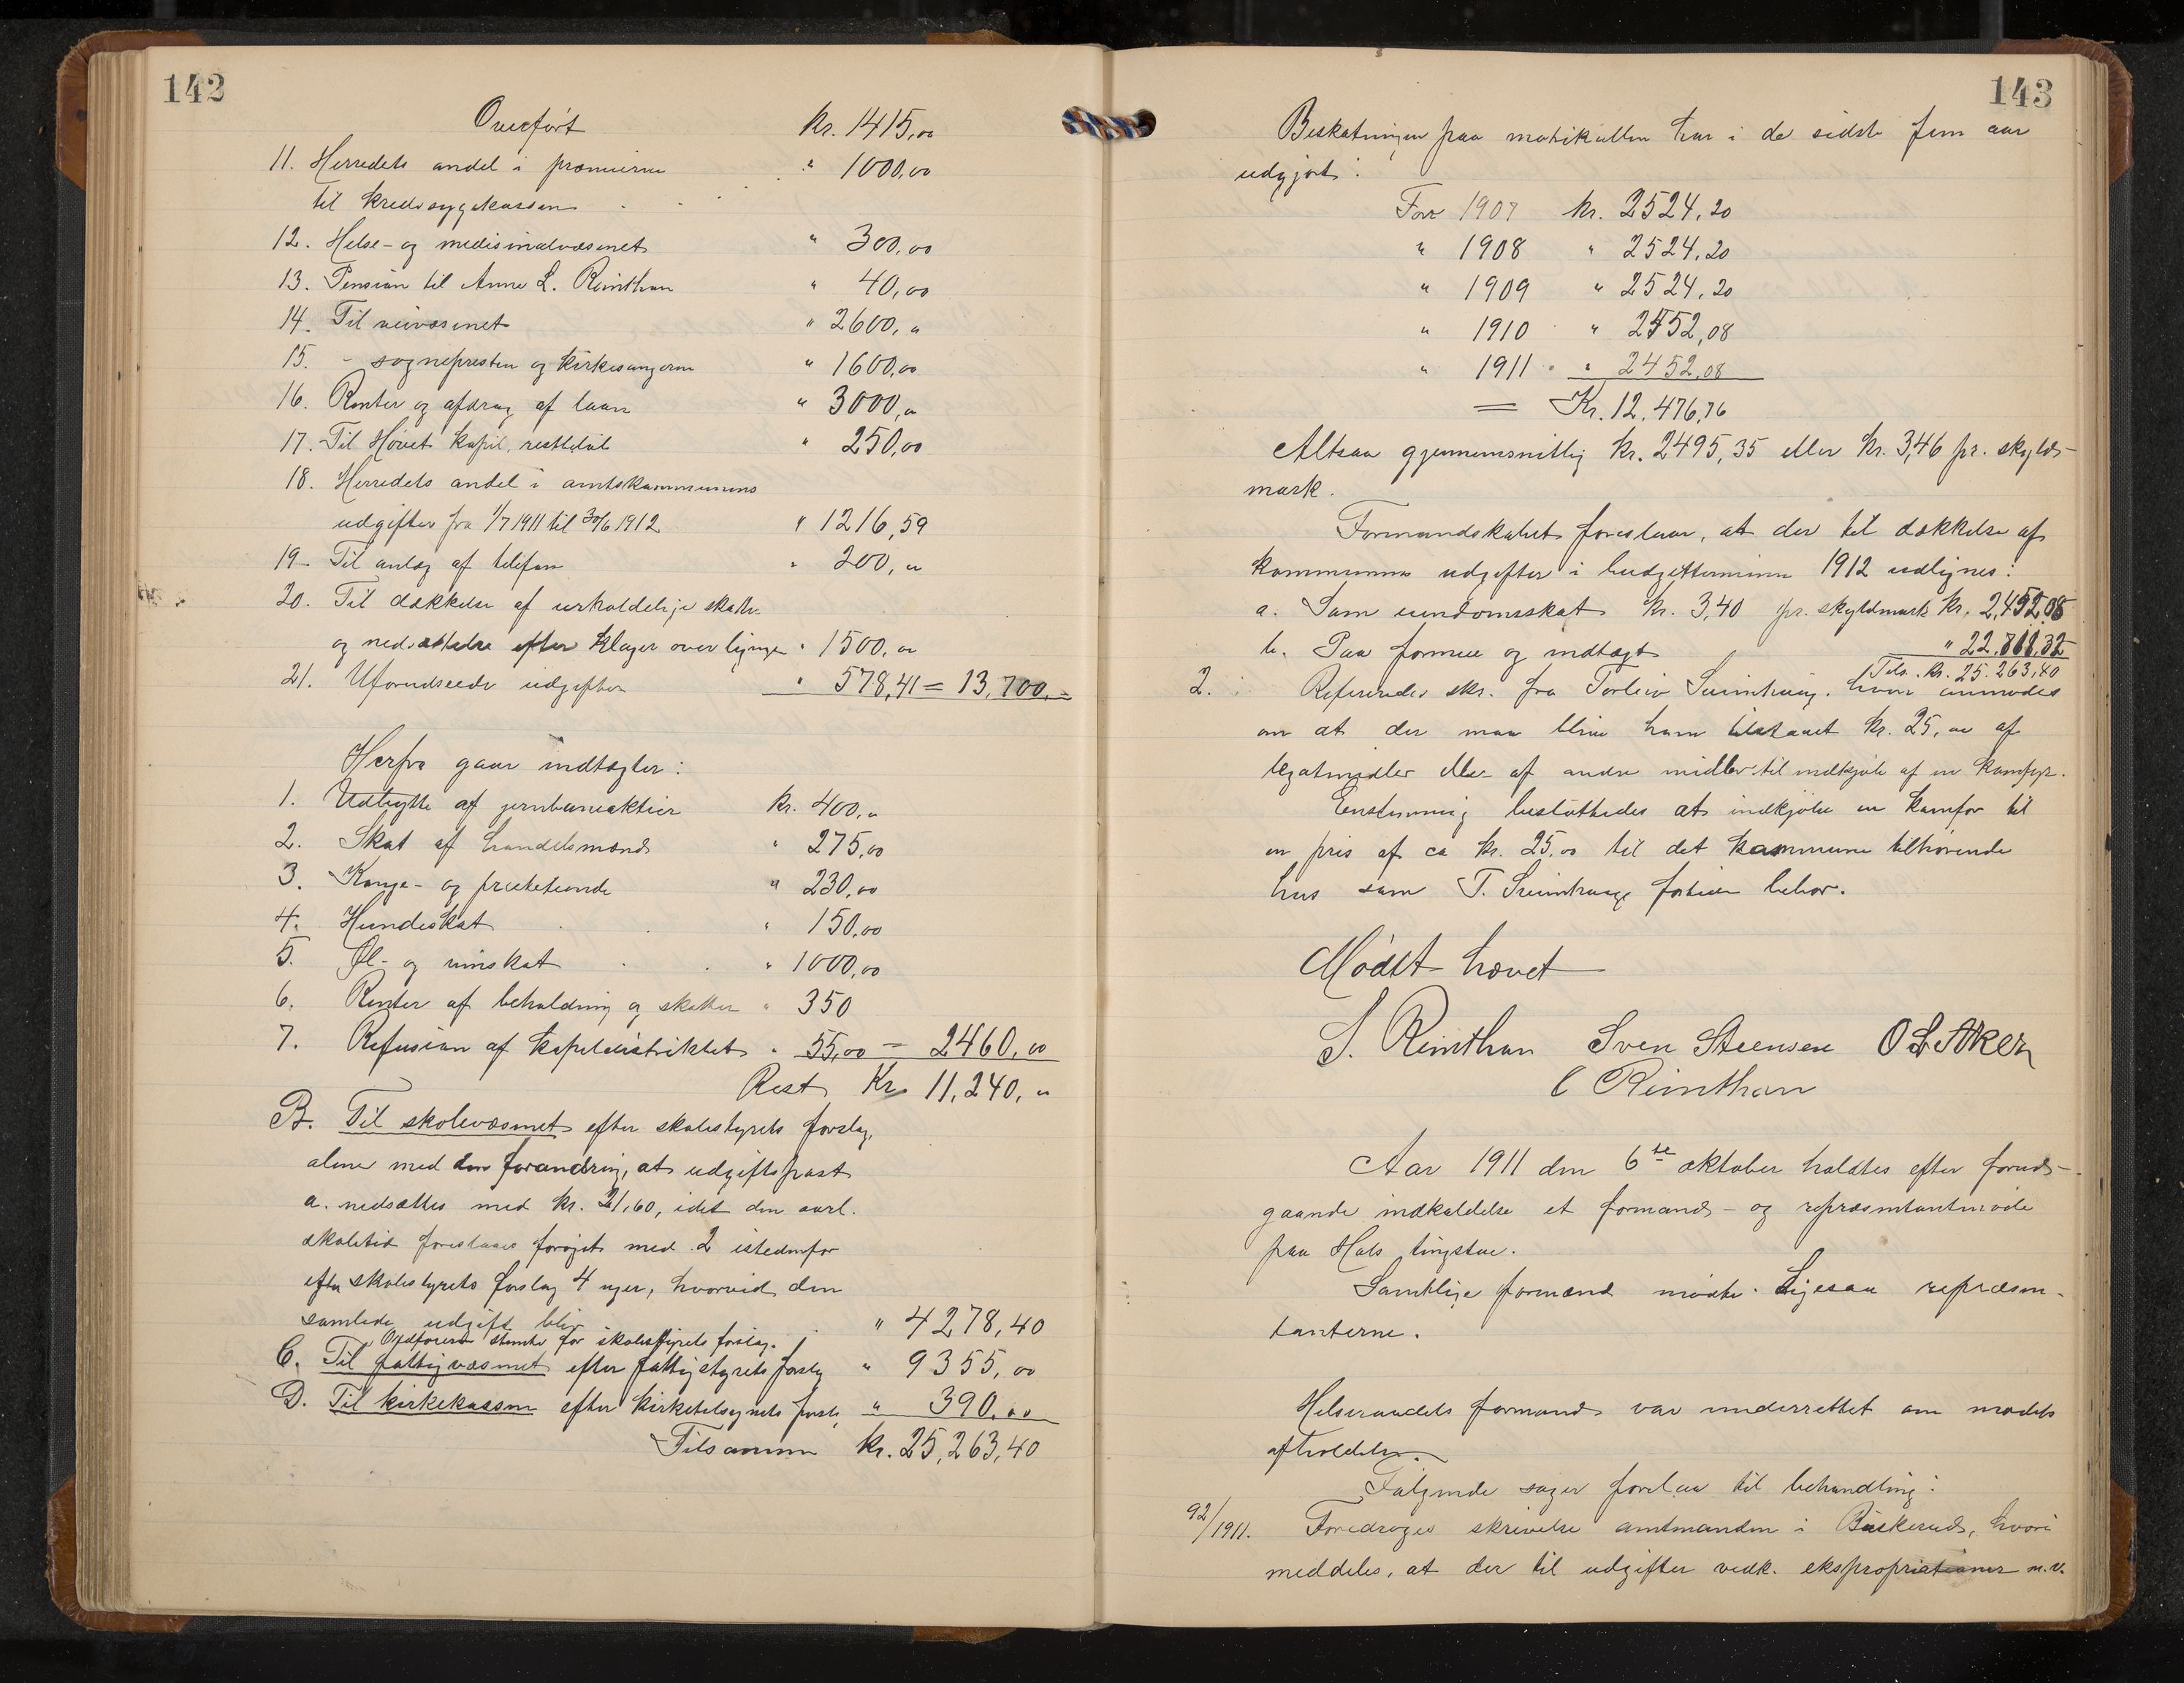 142
Overført kr. 1415,00
11. Herredets andel i præmierne " 1000,00
til kredssygekassen
12. Helse- og medisinalvæsenet " 300,00
13. Pension til Anne L. Reinthon " 40,00
14. Til veivæsenet " 2600, "
15. - sognepresten og kirkesangeren " 1600,00
16. Renter og afdrag af laan " 3000, "
17. Til Hovet kapel, restbeløb " 250,00
18. Herredets andel i amtskommunens
udgifter fra 1/7 1911 til 30/6 1912 " 1216,59
19. Til anlæg af telefon " 200, "
20. Til dækkelse af uerholdelige skatter
og nedsættelse efter klager over ligningen " 1500, "
21. Uforudseede udgifter " 578,41 = 13,700,=
Herfra gaar indtægter:
1. Udbytte af jernbaneaktier kr. 400, "
2. Skat af handelsmænd " 275,00
3. Konge- og prestetiende " 230,00
4. Hundeskat " 150,00
5. Øl- og vinskat " 1000,00
6. Renter af beholdning og skatter " 350
7. Refusion af kapeldistriktet " 55,00 = 2460,00
Rest Kr. 11,240, "
B. Til skolevæsenet efter skolestyrets forslag,
alene med den forandring, at udgiftspost
a. nedsættes med kr. 21,60, idet den aarl.
skoletid foreslaaes forøget med 2 istedenfor
efter skolestyrets forslag 4 uger, hvorved den
samlede udgift blir " 4278,40
Ordføreren stemte for skolestyrets forslag.
C. Til fattigvæsenet efter fattigstyrets forslag " 9355,00
D. Til kirkekassen efter kirketilsynets forsl. " 390,00
Tilsammen kr. 25,263,40
143
Beskatningen paa matrikullen har i de sidste fem aar
udgjort:
For 1907 kr. 2524,20
" 1908 " 2524,20
" 1909 " 2524,20
" 1910 " 2452,08
" 1911 " 2452,08
= Kr. 12,476,76
Altsaa gjennemsnitlig kr. 2495,35 eller kr. 3,46 pr. skyld-
mark.
Formandskabet foreslaar, at der til dækkelse af
kommunens udgifter i budgetterminen 1912 udlignes:
a. Som eiendomsskat kr. 3,40 pr. skyldmark kr. 2,452,08
b. Paa formue og indtægt " 22,811,32
Tils. kr. 25.263,40
2. Refereredes skr. fra Torleiv hvori anmodes
om at der maa blive ham tilstaaet kr. 25,00 af
legatmidler eller af andre midler til indkjøb af en komfyr.
Enstemmig besluttedes at indkjøbe en komfor til
en pris af ca kr. 25,00 til det kommunen tilhørende
hus som T. fortiden bebor.
Mødet hævet
S. Reinthon Sven Steensen O L Aker
C Reinthon
Aar 1911 den 6te oktober holdtes efter forud-
gaaende indkaldelse et formands- og repræsentantmøde
paa Hols tingstue.
Samtlige formænd mødte. Ligesaa repræsen-
tanterne.
Helseraadets formand var underrettet om mødets
afholdelse.
Følgende sager forelaa til behandling:
92/1911. Foredroges skrivelse amtmanden i Buskerud, hvori
meddeles, at der til udgifter vedk. ekspropriationer m.v.